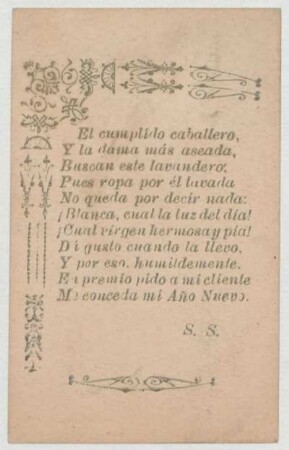 El cumplido caballero,
Y la dama más aseada,
Buscan este lavandero;
Pues ropa por él lavada
No queda por decir nada:
¡Blanca, cual la luz del día!
¡Cual virgen hermosa y pía!
Di gusto cuando la llevo.
Y por eso, humildemente.
En premio pido a mi cliente
Me conceda mi Año Nuevo.
S. S.